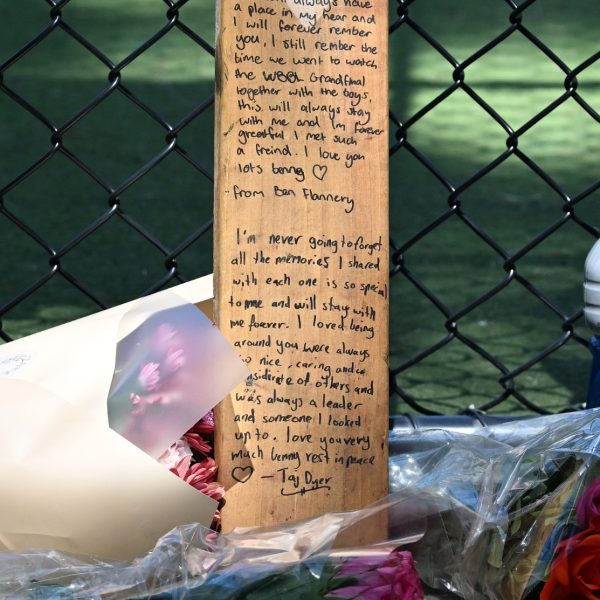 always have
a place in my hear and
I will forever rember
you, I still rember the
time we went to watch
the WBBL Grandfinal
together with the boys,
this will always stay
with me and I'm forever
greatful I met such
a freind. I love you
lots benny ♡
-from Ben Flannery
I'm never going to forget
all the memories I shared
with each one is so special
to me and will stay with
me forever. I loved being
around you were always
so nice, caring and
considerate of others and
was always a leader
and someone I looked
up to. love you very
much benny rest in peace
♡ - Taj Dyer